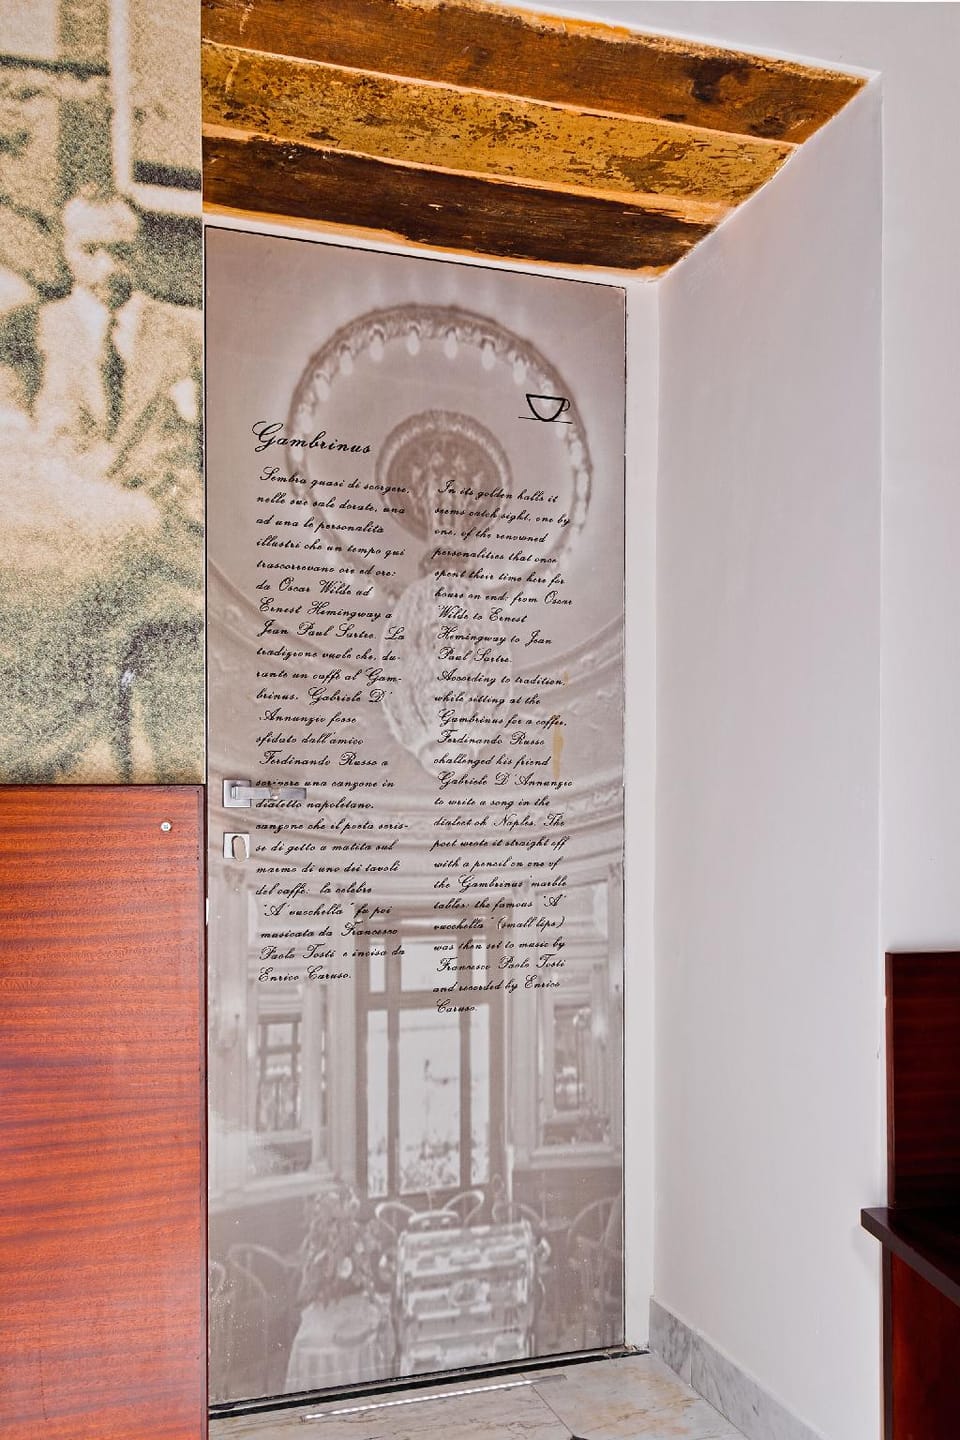 Gambrinus
Sembra quasi di scorgere,
nelle sue sale dorate, una
ad una le personalità
illustri che un tempo qui
trascorrevano ore ed ore:
da Oscar Wilde ad
Ernest Hemingway a
Jean Paul Sartre. La
tradizione vuole che, du-
rante un caffè al Gam-
brinus, Gabriele D'
Annunzio fosse
sfidato dall'amico
Ferdinando Russo a
scrivere una canzone in
dialetto napoletano,
canzone che il poeta scris-
se di getto a matita sul
marmo di uno dei tavoli
del caffè: la celebre
"A' vucchella" fu poi
musicata da Francesco
Paolo Tosti e incisa da
Enrico Caruso.
In its golden halls it
seems catch sight, one by
one, of the renowned
personalities that once
spent their time here for
hours on end: from Oscar
Wilde to Ernest
Hemingway to Jean
Paul Sartre.
According to tradition,
while sitting at the
Gambrinus for a coffee,
Ferdinando Russo
challenged his friend
Gabriele D'Annunzio
to write a song in the
dialect ok Naples. The
poet wrote it straight off
with a pencil on one of
the Gambrinus' marble
tables: the famous "A'
vucchella" (small lips)
was then set to music by
Francesco Paolo Tosti
and recorded by Enrico
Caruso.